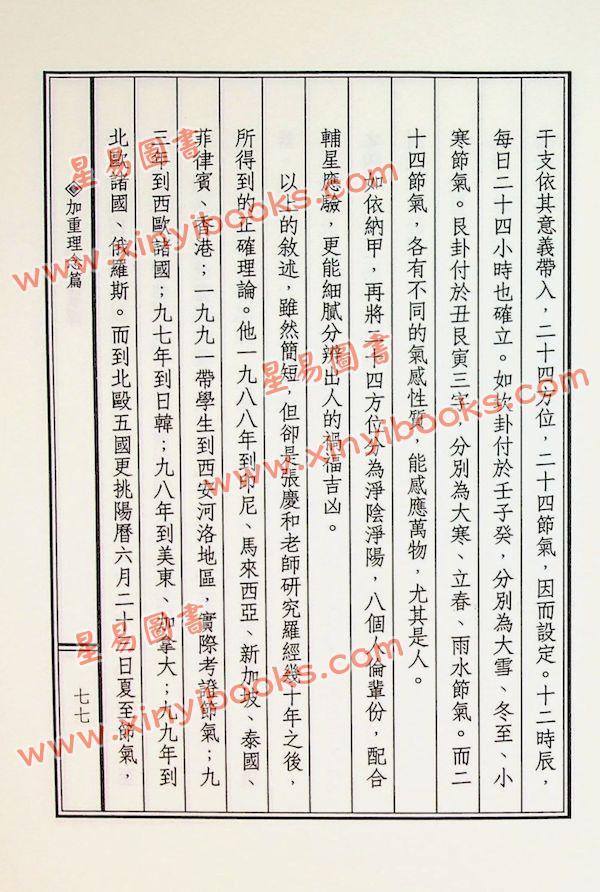 干支依其意義帶入，二十四方位，二十四節氣，因而設定。十二時辰，
每日二十四小時也確立。如坎卦付於壬子癸，分別為大雪、冬至、小
寒節氣。艮卦付於丑艮寅三字，分別為大寒、立春、雨水節氣。而二
十四節氣，各有不同的氣感性質，能感應萬物，尤其是人。
如依納甲，再將二十四方位分為淨陰淨陽，八個人倫輩份，配合
輔星應驗，更能細膩分辨出人的禍福吉凶。
以上的敘述，雖然簡短，但卻是張慶和老師研究羅經幾十年之後，
所得到的正確理論。他一九八八年到印尼、馬來西亞、新加坡、泰國、
菲律賓、香港；一九九一帶學生到西安河洛地區，實際考證節氣；九
三年到西歐諸國；九七年到日韓；九八年到美東、加拿大；九九年到
北歐諸國、俄羅斯。而到北歐五國更挑陽曆六月二十三日夏至節氣，
加重理念篇
七七
星易圖書
www.xinyibooks.com
星易圖書
www.xinyibooks.com
星易圖書
www.xinyibooks.com